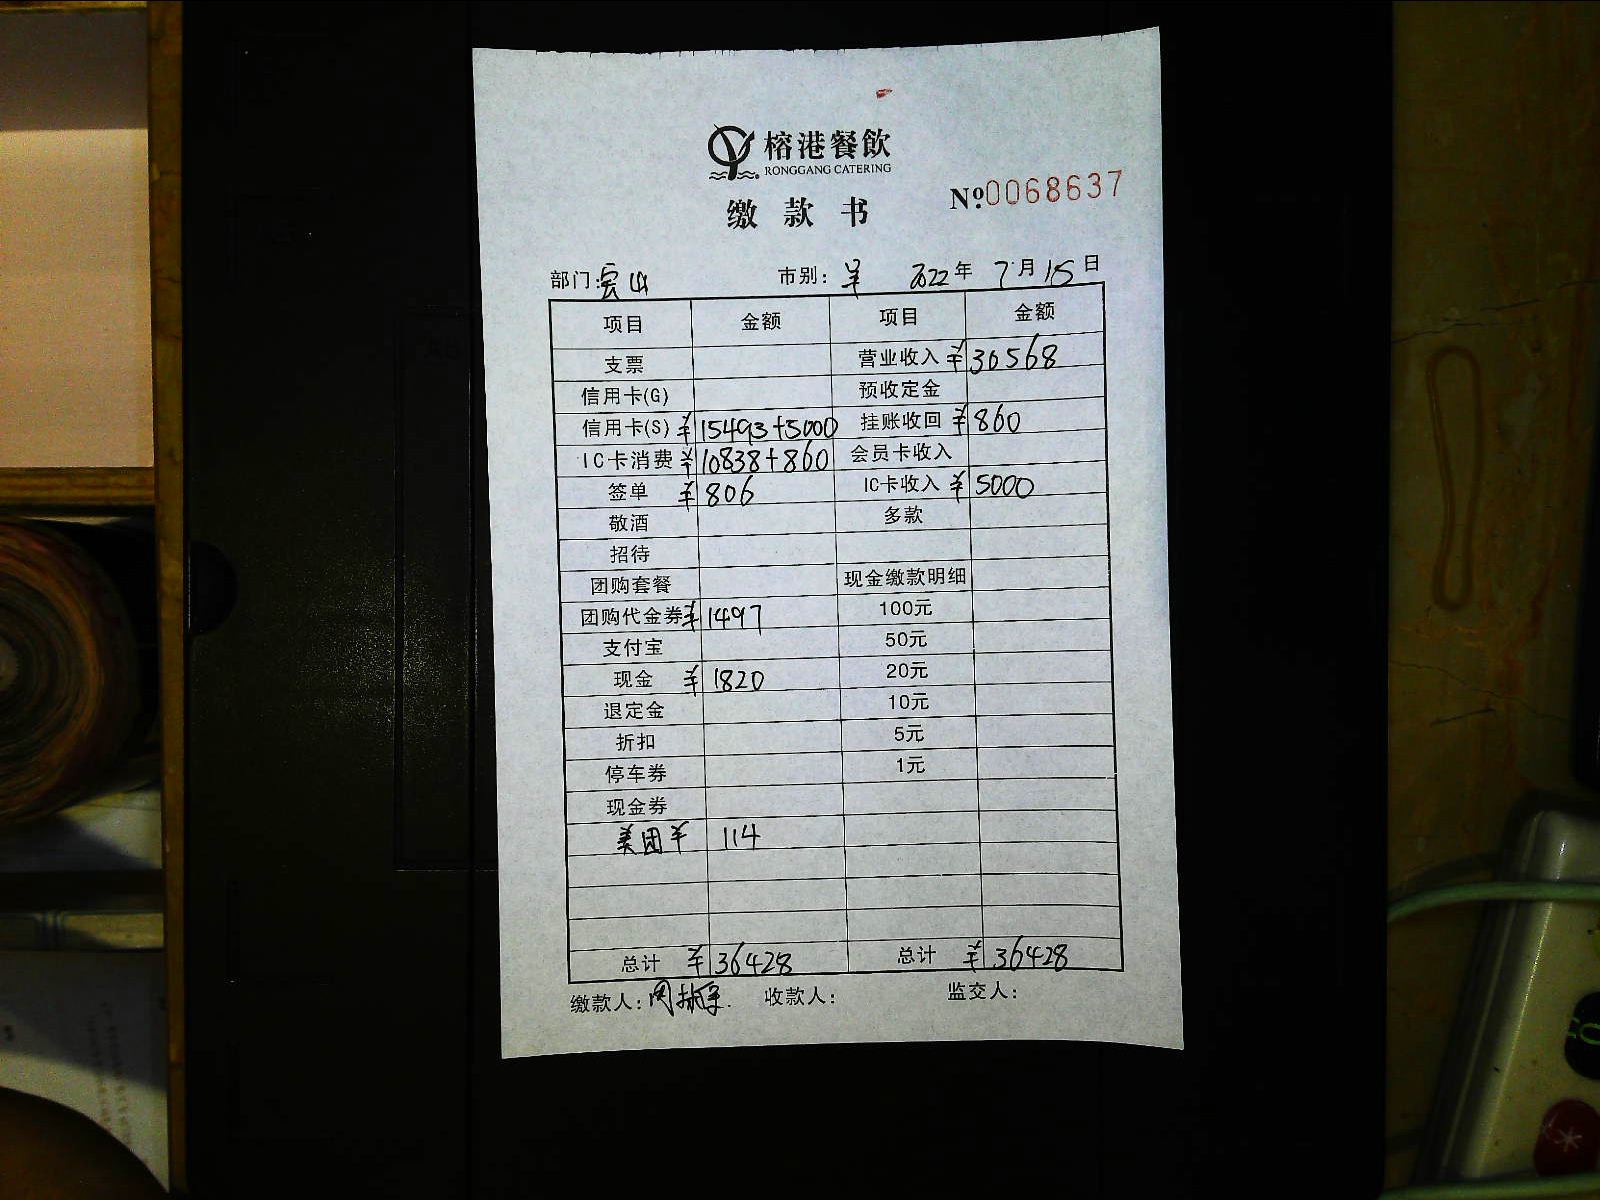 榕港餐飲
RONGGANG CATERING
缴款书 Nº 0068637
部门: 云山 市别: 早 2022年7月15日
项目 金额 项目 金额
支票 营业收入 ¥30568
信用卡(G) 预收定金
信用卡(S) ¥15493+5000 挂账收回 ¥860
IC卡消费 ¥10838+860 会员卡收入
签单 ¥806 IC卡收入 ¥5000
敬酒 多款
招待
团购套餐 现金缴款明细
团购代金券 ¥1497 100元
支付宝 50元
现金 ¥1820 20元
退定金 10元
折扣 5元
停车券 1元
现金券
美团 ¥114
总计 ¥36428 总计 ¥36428
缴款人: 收款人: 监交人: